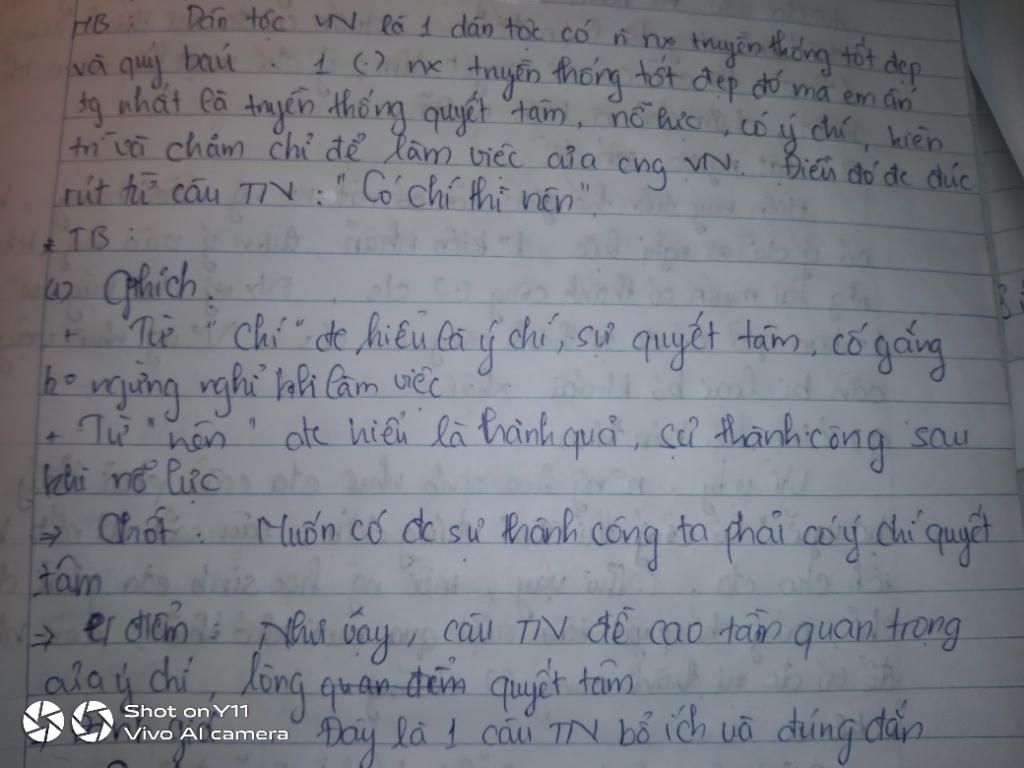 MB : Dân tộc VN là 1 dân tộc có n nx truyền thống tốt đẹp
và quý báu . 1 (.) nx truyền thống tốt đẹp đó mà em ấn
tg nhất là truyền thống quyết tâm, nỗ lực, có ý chí, kiên
trì và chăm chỉ để làm việc của cng VN. Điều đó đc đúc
rút từ câu TN : "Có chí thì nên"
* TB :
Gthích :
+ Từ "chí" đc hiểu là ý chí, sự quyết tâm, cố gắng
ko ngừng nghỉ khi làm việc
+ Từ "nên" đc hiểu là thành quả, sự thành công sau
khi nỗ lực
=> Chốt : Muốn có đc sự thành công ta phải có ý chí quyết
tâm
=> điểm : Như vậy, câu TN đề cao tầm quan trọng
của ý chí, lòng quan điểm quyết tâm
Đây là 1 câu TN bổ ích và đúng đắn
Shot on Y11
Vivo AI camera